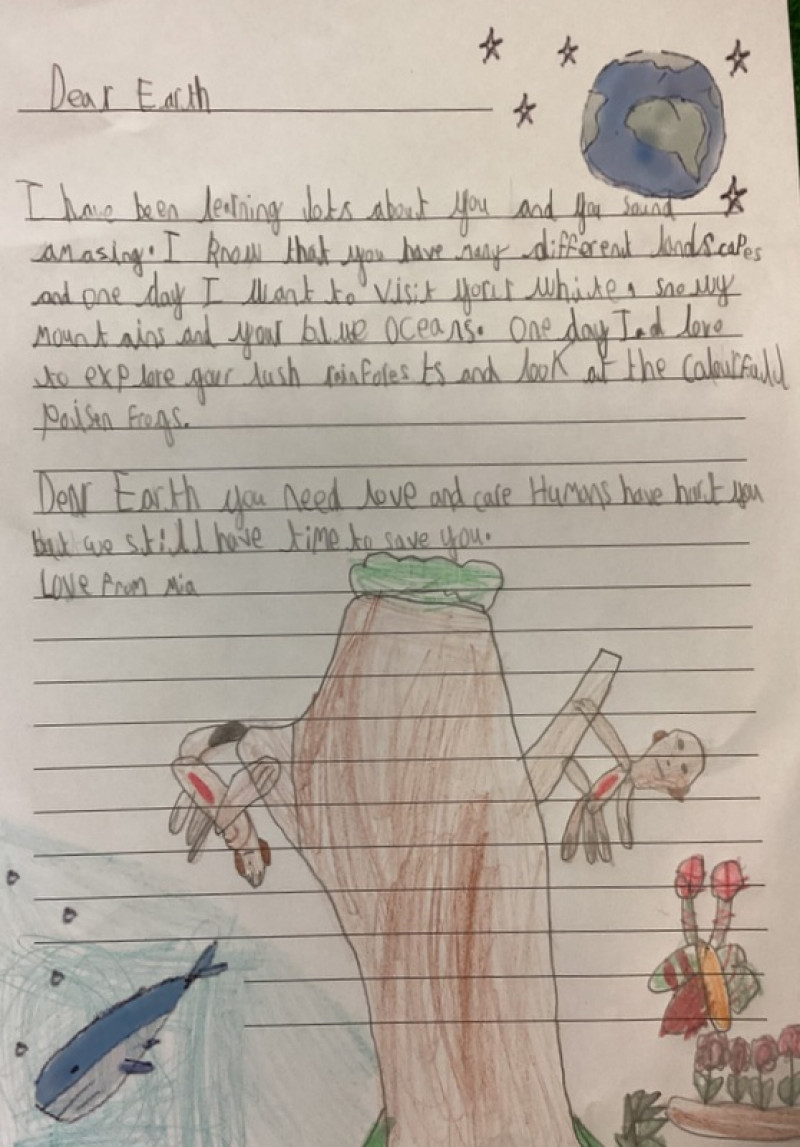 Dear Earth
I have been learning lots about you and you sound
amasing. I know that you have many different landscapes
and one day I want to visit your white, snowy
mountains and your blue oceans. One day I.d love
to explore your lush rainforests and look at the colourfull
poisen frogs.
Dear Earth you need love and care Humans have hurt you
but we still have time to save you.
Love From Mia